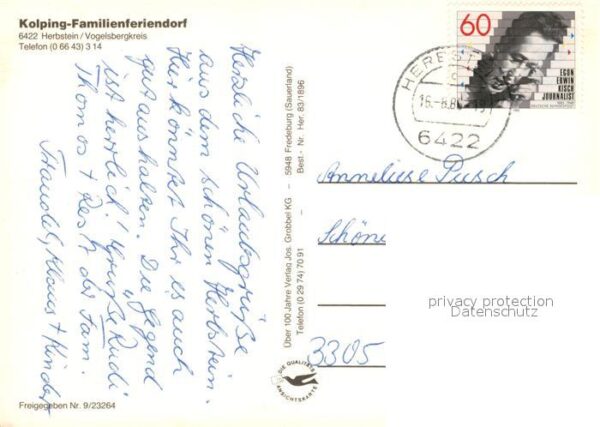 Kolping-Familienferiendorf
6422 Herbstein/Vogelsbergkreis
Telefon (0 66 43) 3 14
Herzliche Urlaubsgrüße
aus dem schönen Herbstein.
Hier könntet Ihr es auch
gut aushalten. Die Gegend
ist herrlich! Grüße Rudi
Thomas + Rest der Fam.
Traudel, Klaus + Kinder
Freigegeben Nr. 9/23264
Über 100 Jahre Verlag Jos. Grobbel KG – 5948 Fredeburg (Sauerland)
Telefon (0 29 74) 70 91 – Best.-Nr. Her. 83/1896
DIE QUALITÄTS
ANSICHTSKARTE
60
EGON
ERWIN
KISCH
JOURNALIST
1885-1948
DEUTSCHE BUNDESPOST
HERBST
6422
Anneliese Pusch
Schöne
3305
privacy protection
Datenschutz